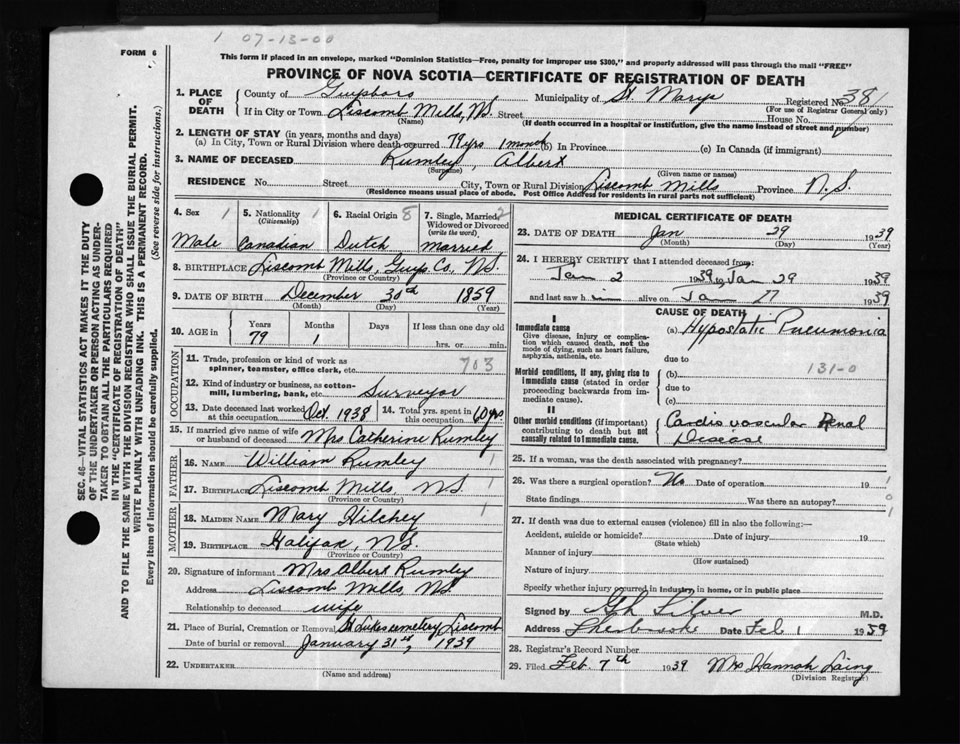 1 07-13-00
FORM 6
This form if placed in an envelope, marked "Dominion Statistics—Free, penalty for improper use $300," and properly addressed will pass through the mail "FREE"
PROVINCE OF NOVA SCOTIA—CERTIFICATE OF REGISTRATION OF DEATH
SEC. 46—VITAL STATISTICS ACT MAKES IT THE DUTY
OF THE UNDERTAKER OR PERSON ACTING AS UNDER-
TAKER TO OBTAIN ALL THE PARTICULARS REQUIRED
IN THE "CERTIFICATE OF REGISTRATION OF DEATH"
AND TO FILE THE SAME WITH THE DIVISION REGISTRAR WHO SHALL ISSUE THE BURIAL PERMIT.
WRITE PLAINLY WITH UNFADING INK. THIS IS A PERMANENT RECORD.
Every item of information should be carefully supplied. (See reverse side for instructions.)
1. PLACE OF DEATH County of Guysboro Municipality of St Marys Registered No. 381
(For use of Registrar General only)
If in City or Town Liscomb Mills, N.S. Street House No.
(Name) (If death occurred in a hospital or institution, give the name instead of street and number)
2. LENGTH OF STAY (in years, months and days)
(a) In City, Town or Rural Division where death occurred 79 yrs 1 month (b) In Province (c) In Canada (if immigrant)
3. NAME OF DECEASED Rumley, Albert
(Surname) (Given name or names)
RESIDENCE No. Street City, Town or Rural Division Liscomb Mills Province N.S.
(Residence means usual place of abode. Post Office Address for residents in rural parts not sufficient)
4. Sex 1 5. Nationality 1 6. Racial Origin 8 7. Single, Married, 2
(Citizenship) Widowed or Divorced
(write the word)
Male Canadian Dutch Married
8. BIRTHPLACE Liscomb Mills, Guys. Co, N.S.
(Province or Country)
9. DATE OF BIRTH December 30th 1859
(Month) (Day) (Year)
10. AGE in Years Months Days If less than one day old
79 1 hrs. or min.
OCCUPATION
11. Trade, profession or kind of work as
spinner, teamster, office clerk, etc. 703
12. Kind of industry or business, as cotton-
mill, lumbering, bank, etc. Surveyor
13. Date deceased last worked at this occupation Oct. 1938 14. Total yrs. spent in this occupation 60 yrs
15. If married give name of wife
or husband of deceased Mrs Catherine Rumley
FATHER
16. NAME William Rumley 1
17. BIRTHPLACE Liscomb Mills, N.S. 1
MOTHER
18. MAIDEN NAME Mary Hilchey 1
19. BIRTHPLACE Halifax, N.S.
(Province or Country)
20. Signature of informant Mrs Albert Rumley
Address Liscomb Mills, N.S.
Relationship to deceased wife
21. Place of Burial, Cremation or Removal St Lukes cemetery, Liscomb
Date of burial or removal January 31st, 1939
22. UNDERTAKER
(Name and address)
MEDICAL CERTIFICATE OF DEATH
23. DATE OF DEATH Jan 29 1939
(Month) (Day) (Year)
24. I HEREBY CERTIFY that I attended deceased from:
Jan 2 1939 to Jan 29 1939
and last saw him alive on Jan 27 1939
CAUSE OF DEATH
I
Immediate cause
Give disease, injury or complica-
tion which caused death, not the
mode of dying, such as heart failure,
asphyxia, asthenia, etc.
(a) Hypostatic Pneumonia
due to
Morbid conditions, if any, giving rise to
immediate cause (stated in order
proceeding backwards from im-
mediate cause).
(b) 131-0
due to
(c)
II
Other morbid conditions (if important)
contributing to death but not
causally related to immediate cause.
Cardio vascular Renal
Disease
25. If a woman, was the death associated with pregnancy?
26. Was there a surgical operation? No Date of operation 19 1
State findings Was there an autopsy? 0
1
27. If death was due to external causes (violence) fill in also the following:—
Accident, suicide or homicide? Date of injury 19
(State which)
Manner of injury
(How sustained)
Nature of injury
Specify whether injury occurred in industry, in home, or in public place
Signed by Silver M.D.
Address Sherbrooke Date Feb 1 1939
28. Registrar's Record Number
29. Filed Feb. 7th 1939 Mrs Hannah Laing
(Division Registrar)